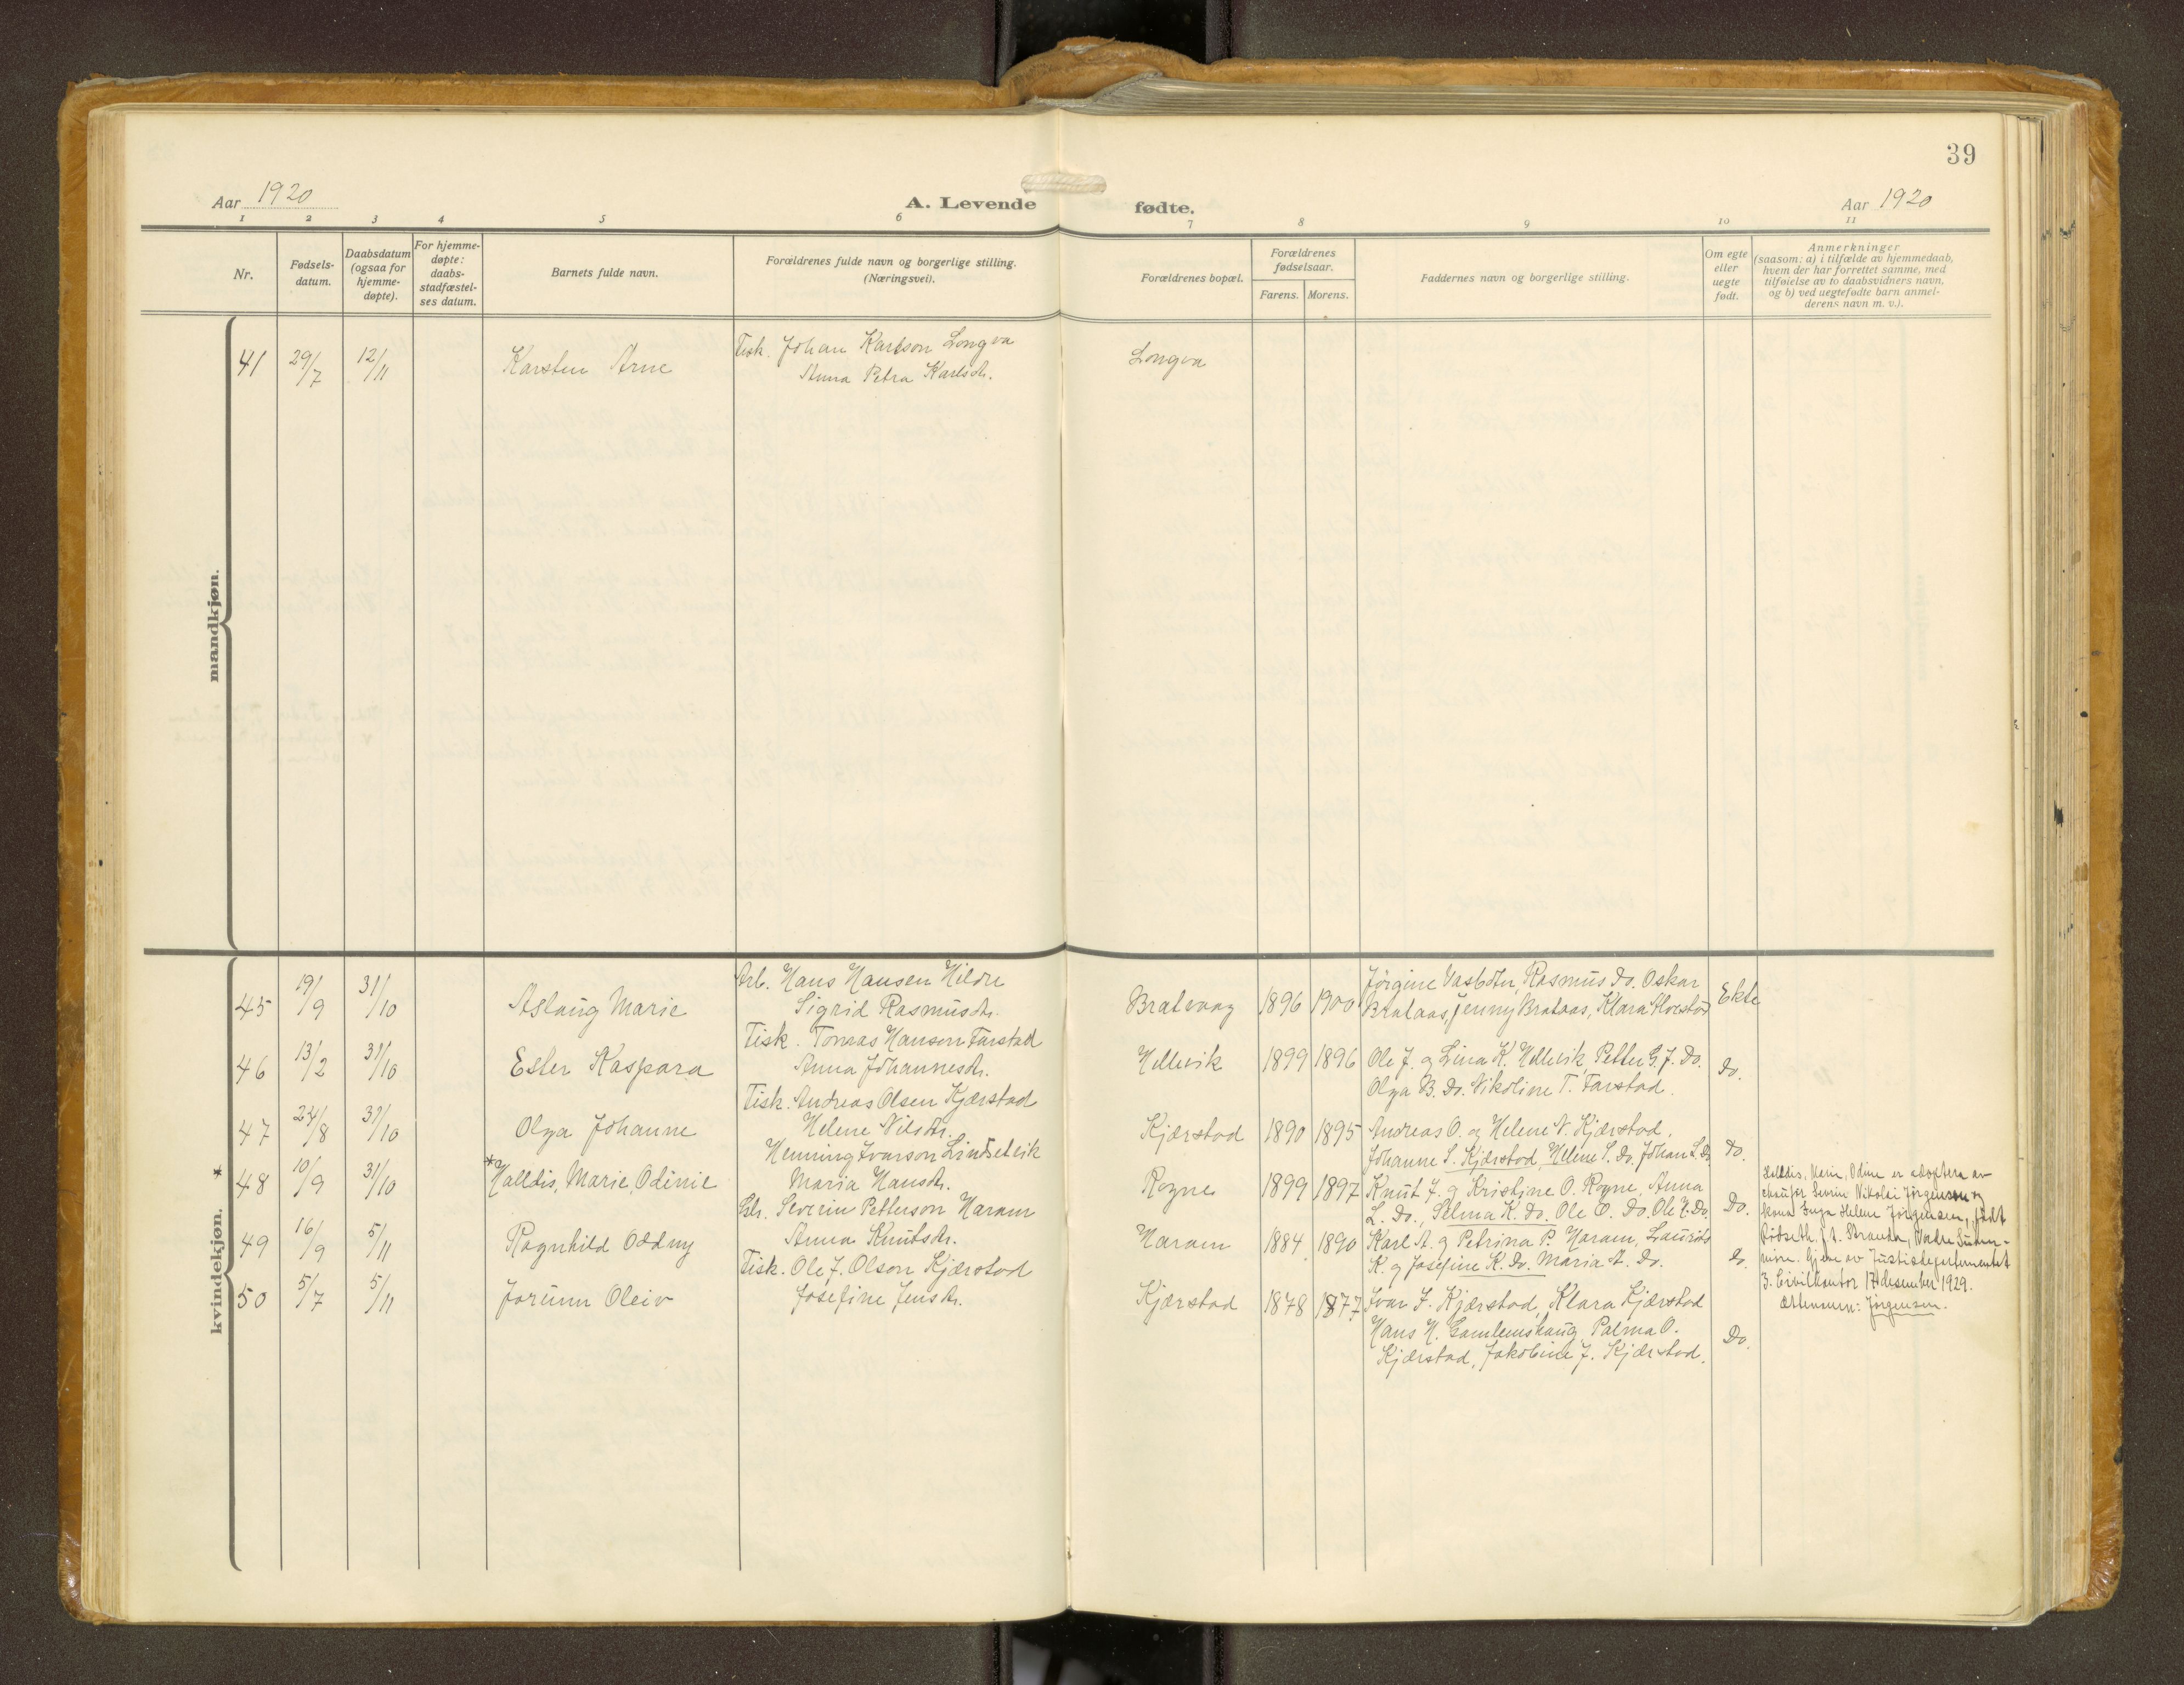 39
Aar 1920
A. Levende fødte.
Aar 1920
1 2 3 4 5 6 7 8 9 10 11
Nr.
Fødsels-
datum.
Daabsdatum
(ogsaa for
hjemme-
døpte).
For hjemme-
døpte:
daabs-
stadfæstel-
ses datum.
Barnets fulde navn.
Forældrenes fulde navn og borgerlige stilling.
(Næringsvei).
Forældrenes bopæl.
Forældrenes
fødselsaar.
Farens. Morens.
Faddernes navn og borgerlige stilling.
Om egte
eller
uegte
født.
Anmerkninger
(saasom: a) i tilfælde av hjemmedaab,
hvem der har forrettet samme, med
tilføielse av to daabsvidners navn,
og b) ved uegtefødte barn anmel-
derens navn m. v.).
mandkjøn.
41 29/7 12/11 Karsten Arne
Fisk. Johan Karlson Longva
Anna Petra Karlsdr.
Longva
kvindekjøn.
45 19/9 31/10 Aslaug Marie
Arb. Hans Hansen Hildre
Sigrid Rasmusdr.
Bratvaag 1896 1900
Jørgine Rasmus Do. Oskar
Brataas, Jenny Brataas, Klara
Ekte
46 13/2 31/10 Ester Kaspara
Fisk. Tomas Hanson Farstad
Anna Johannesdr.
Hellevik 1899 1896
Ole J. og Lina K. Hellevik, Petter G. J. Do.
Olga B. Do. Nikoline T. Farstad.
Do.
47 24/8 31/10 Olga Johanne
Fisk. Andreas Olsen Kjærstad
Helene Nilsdr.
Kjærstad 1890 1895
Andreas O. og Helene N. Kjærstad.
Johanne S. Kjærstad, Helene S. Do. Johan L. Do.
Do.
*
48 10/9 31/10 *Halldis, Marie, Odinie
Henning Ivarson Lindsetvik
Maria Hansdr.
Rogne 1899 1897
Knut J. og Kristine O. Rogne, Anna
L. Do., Selma K. Do. Ole O. Do. Ole K. Do.
Do.
Halldis, Marie, Odine er adoptera av
chaufør Severin Nikolai Jørgensen og
kona Inga Helene Jørgensen, født
Rødseth, p. t. Stranda, Nordre Sunn-
møre. Gjenn av Justisdepartementet
3. Civilkontor 17 desember 1929.
Ættenamn: Jørgensen.
49 16/9 5/11 Ragnhild Oddny
Gbr. Severin Petterson Haram
Anna Knutsdr.
Haram 1884 1890
Karl A. og Petrina P. Haram, Laurits
K. og Josefine K. Do. Maria A. Do.
Do.
50 5/7 5/11 Jorunn Oleiv
Fisk. Ole J. Olson Kjærstad
Josefine Jensdr.
Kjærstad 1878 1877
Ivar J. Kjærstad, Klara Kjærstad
Hans H. Gamlemshaug, Palma O.
Kjærstad, Jakobine J. Kjærstad.
Do.